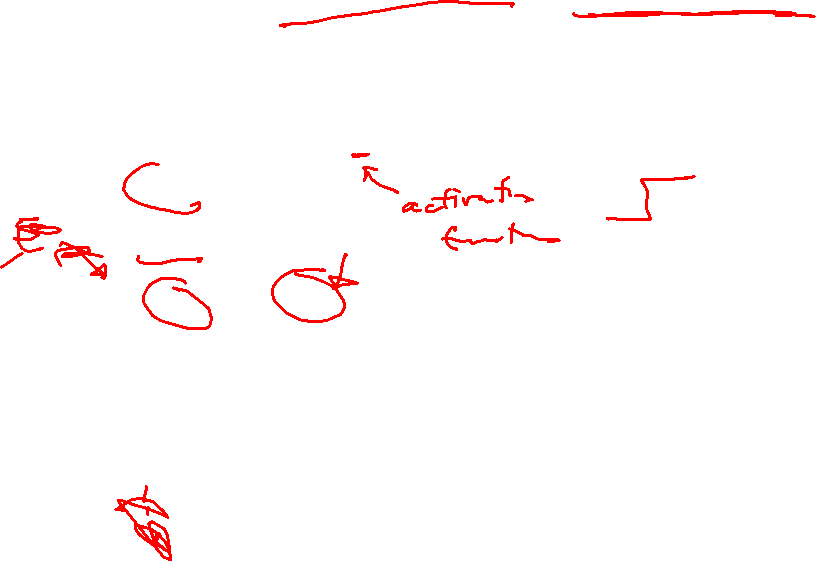 activation
function